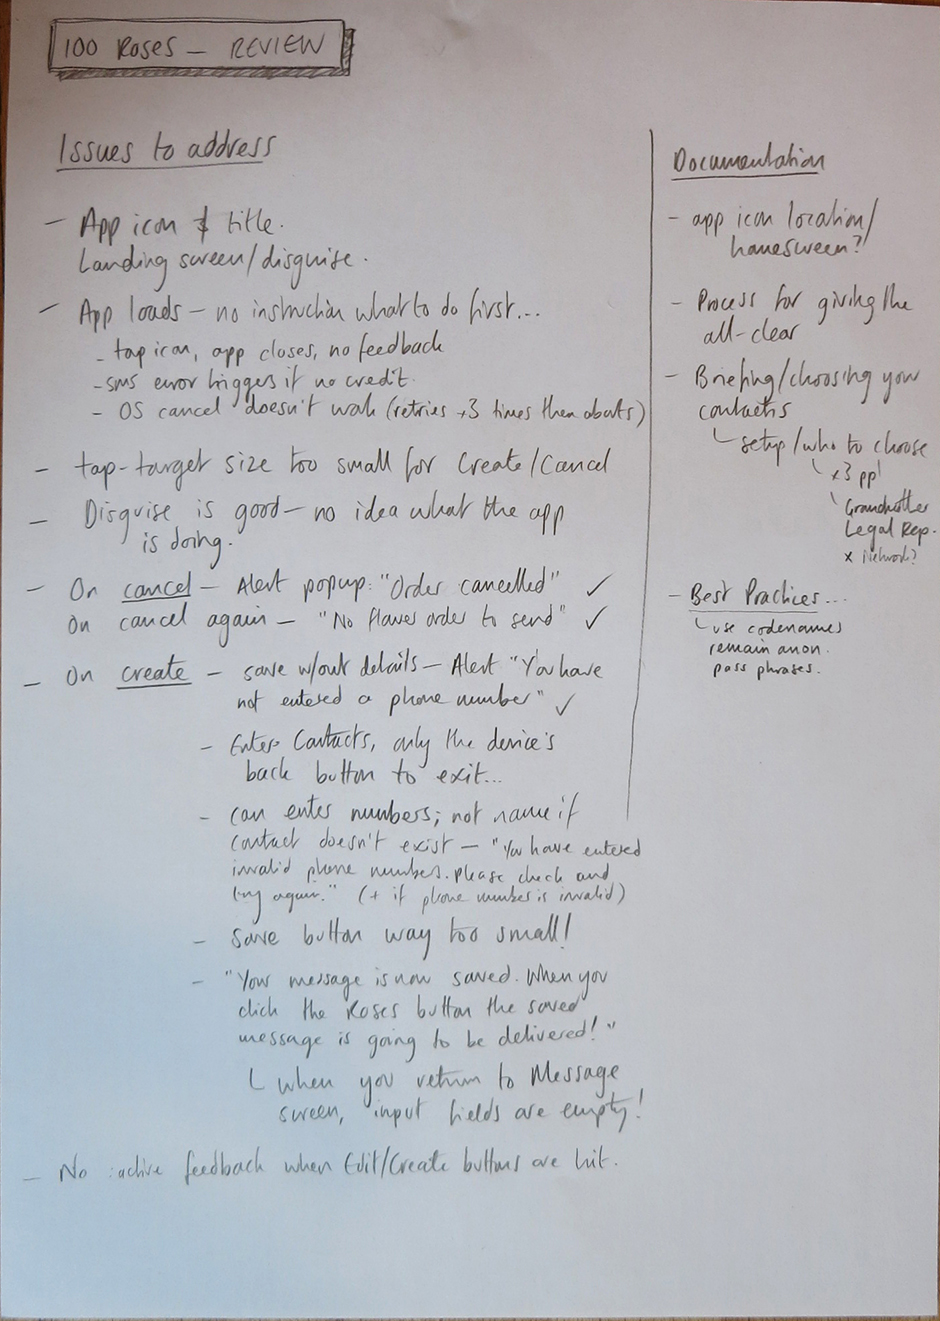 100 ROSES — REVIEW
Issues to address
- App icon & title.
Landing screen/disguise.
- App loads - no instruction what to do first...
- tap icon, app closes, no feedback
- sms error triggers if no credit.
- OS cancel doesn't work (retries +3 times then aborts)
- tap-target size too small for Create/Cancel
- Disguise is good - no idea what the app
is doing.
- On cancel - Alert popup: "Order cancelled" ✓
On cancel again - "No flower order to send" ✓
- On create - save w/out details - Alert "You have
not entered a phone number" ✓
- Enter Contacts, only the device's
back button to exit...
- can enter numbers; not name if
contact doesn't exist - "You have entered
invalid phone numbers. Please check and
try again." (+ if phone number is invalid)
- Save button way too small!
- "Your message is now saved. When you
click the Roses button the saved
message is going to be delivered!"
└ when you return to Message
screen, input fields are empty!
- No :active feedback when Edit/Create buttons are hit.
Documentation
- app icon location/
homescreen?
- Process for giving the
all-clear
- Briefing/choosing your
contacts
└ setup/who to choose
└ x3 ppl
└ Grandmother
Legal Rep.
x Network?
- Best Practices...
└ use codenames
remain anon.
pass phrases.